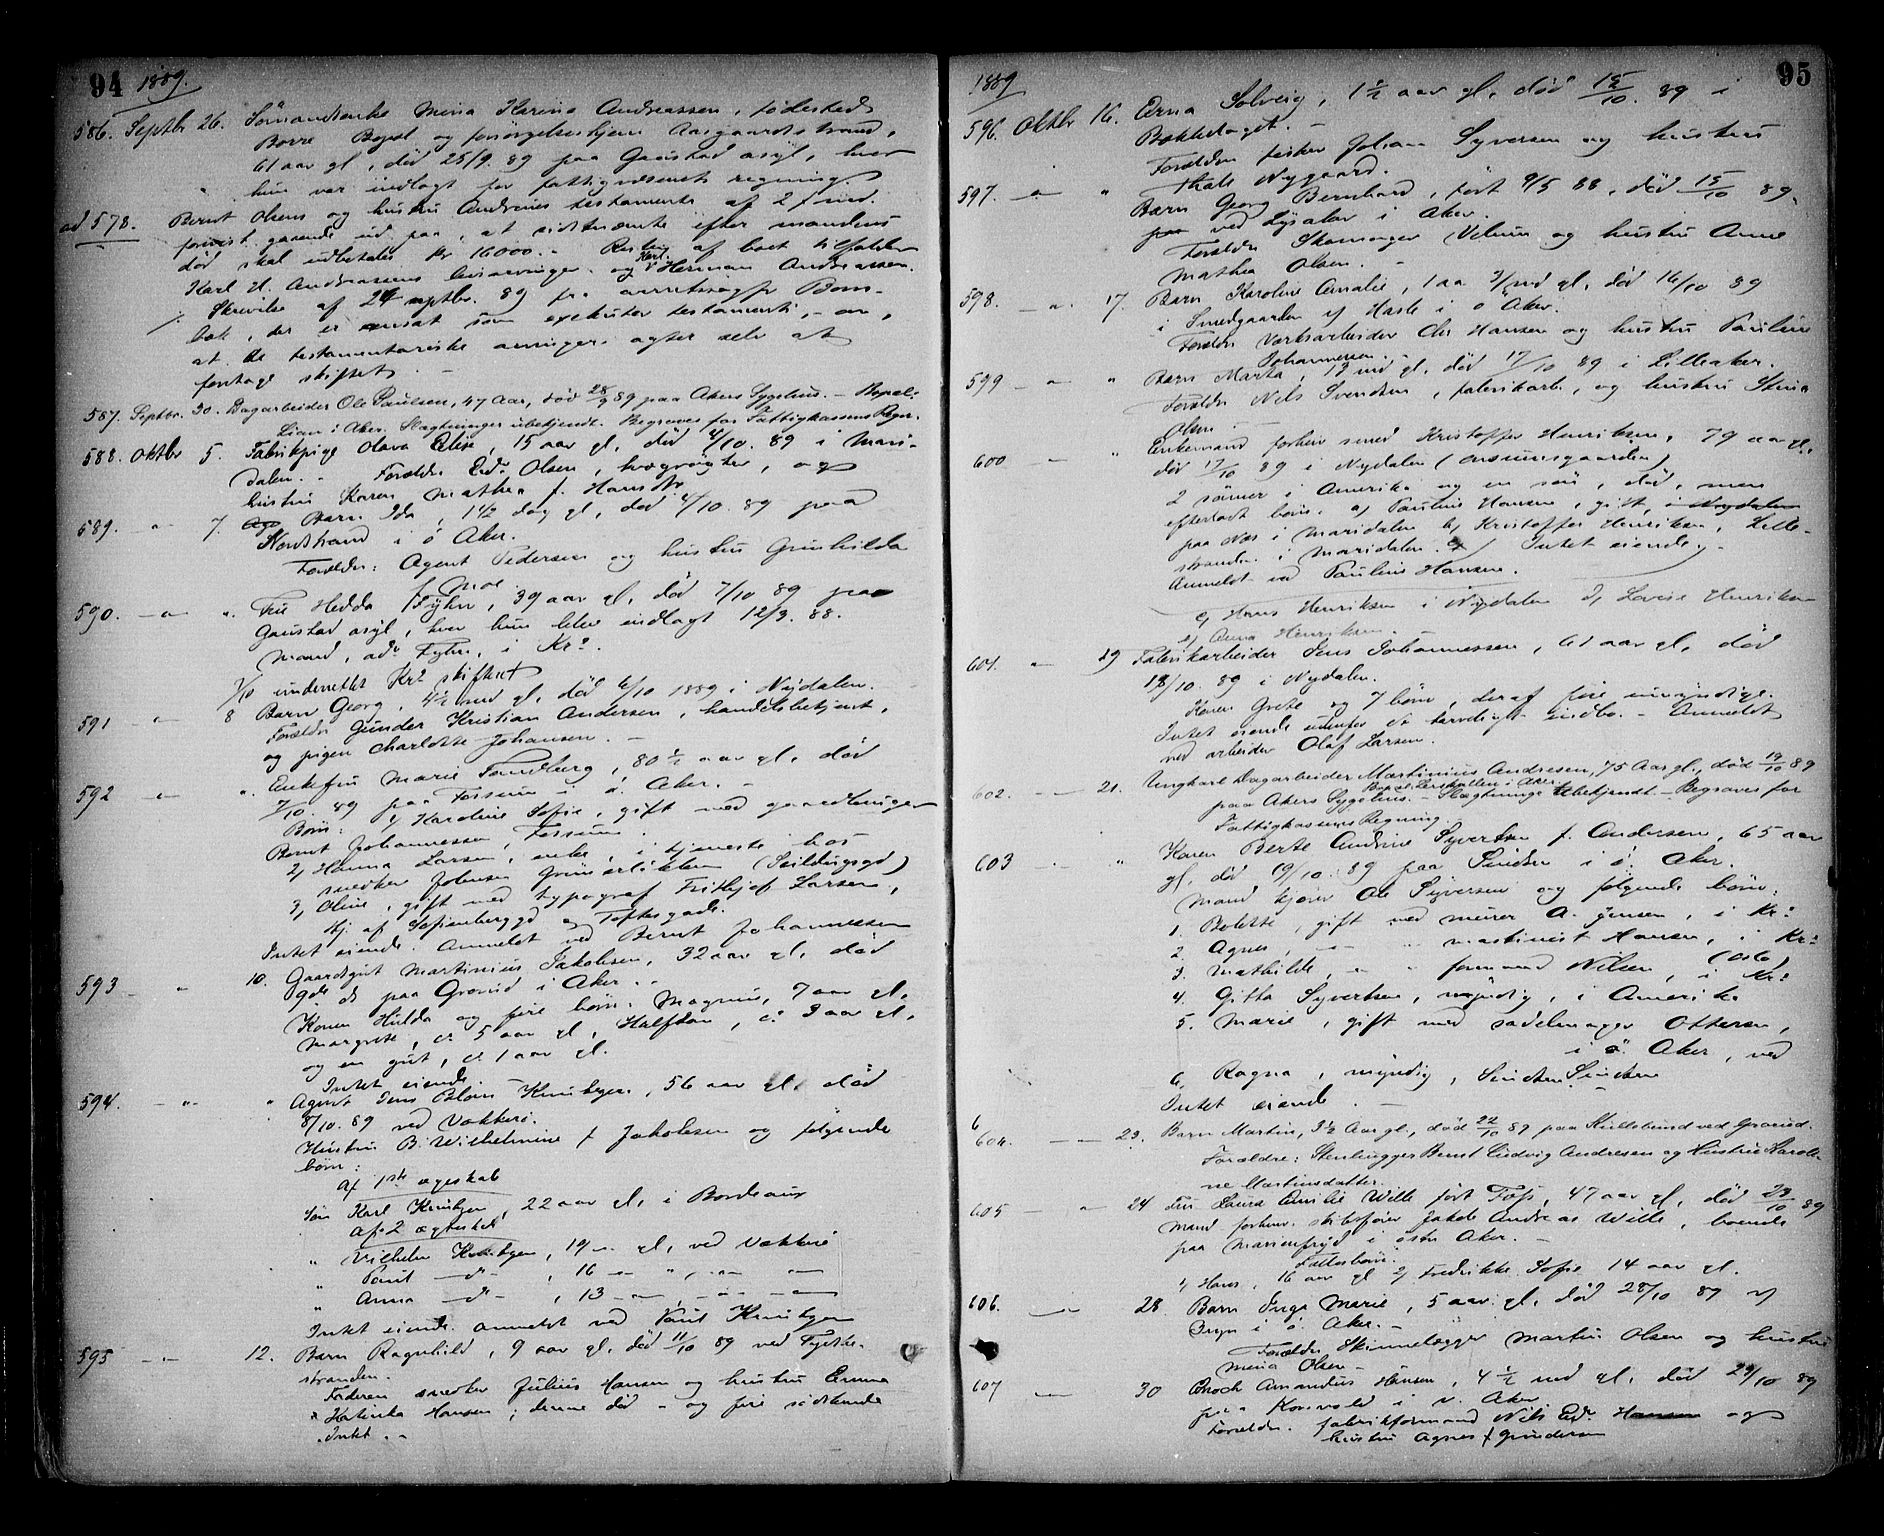 94 1889.
586. Septbr 26. Sömandsenke Mina Karine Andreassen, födested
Borre Bopæl og forsørgelseshjem Aasgaardstrand,
61 aar gl, död 25/9. 89 paa Gaustad asyl, hvor
hun var indlagt for fattigvæsenets regning.
ad 578. Bernt Olsens og hustru Andrines testamente af 2 f. md.
forevist, gaaende ud paa, at sidstnævnte efter mandens
död skal udbetales Kr 16000. - Resten af boet tilfalder
Karl H. Andreassens livsarvinger og Karl Herman Andreassen.
Skrivelse af 24 septbr. 89 fra overretssagfr Bom-
bak, der er ansat som exekutor testamenti, - om,
at de testamentariske arvinger agter selv at
foretage skiftet. -
587. Septbr. 30. Dagarbeider Ole Paulsen, 47 Aar, död 28/9 89 paa Akers Sygehus. - Bopæl:
Lian i Aker. Slægtninger ubekjendt. Begraves for Fattigkassens Regn.
588. Oktbr 5. Fabrikpige Olava Elise, 15 aar gl, död 4/10. 89 i Mari-
dalen. - Forældre Edv. Olsen, kvægrögter, og
hustru Karen Mathea f. Hansdtr
589. " 7. Barn Ida, 1 1/2 dag gl, död 4/10. 89 paa
Nordstrand i ö Aker.
Forældre: Agent Pedersen og hustru Gunhilda
f. Moe.
590. - " - ". Fru Hedda Fyhn, 39 aar gl, död 7/10 89 paa
Gaustad asyl, hvor hun blev indlagt 12/3. 88.
Mand, adv. Fyhn, i Kra.
9/10 underrettet Kra skifteret
591 " 8 Barn Georg, 4 1/2 md gl, död 6/10 1889 i Nydalen. -
Forældre Gunder Kristian Andersen, handelsbetjent,
og pigen Charlotte Johansen. -
592 - " - ". Enkefru Marie Sundberg, 80 1/2 aar gl, död
7/10. 89 paa Fossum i ö. Aker. -
Börn: 1) Karoline Sofie, gift med gaardbruger
Bernt Johannessen, Fossum.
2) Hanna Larsen, enke, i tjeneste hos
snedker Johnsen Grünerlökken (Seildugsgd)
3) Oline, gift med typograf Frithjof Larsen,
Hj. af Sofienberggd og Toftesgade.
Intet eiende. Anmeldt ved Bernt Johannessen
593 - " 10. Gaardsgut Martinius Jakobsen, 32 aar gl, död
9de ds paa Grorud i Aker. -
Konen Hulda og fire börn: Magnus, 7 aar gl,
Margrete, ca 5 aar gl, Halfdan, ca 3 aar gl,
og en gut, ca 1 aar gl.
Intet eiende. -
594. - " - " Agent Jens Blom Knutzen, 56 aar gl, död
8/10. 89 ved Vækkerö.
Hustru B. Wilhelmine f Jakobsen og følgende
börn:
Af 1ste ægteskab
Sön Karl Knutzen, 22 aar gl, i Bordeaux
Af 2 ægteskab
" Vilhelm Knutzen, 19 - gl, ved Vækkerö
" Paul - " - , 16 - " - " -
" Anna - " - , 13 - " - " -
Intet eiende. Anmeldt ved Paul Knutzen
595 - " - 12. Barn Ragnhild, 9 aar gl, död 11/10 89 ved Lysaker-
stranden.
Faderen snedker Julius Hansen og hustru Emma
Katinka Hansen; denne död - og fire södskende
Intet. -
1889 95
596. Oktbr 16. Erna Solveig, 1 1/2 aar gl. död 15/10. 89 i
Bækkelaget. -
Forældre fisker Johan Syversen og hustru
Thale Nygaard.
597. - " - " Barn Georg Bernhard, född 9/5 88, död 15/10 89,
paa ved Lysaker i Aker.
Forældre Skomager Velum og hustru Anne
Mathea Olsen. -
598. - " - 17. Barn Karoline Amalie, 1 aar 3/md gl, död 16/10 89
i Smedgaarden af Hasle i ö Aker.
Forældre værksarbeider Chr Hansen og hustru Pauline
Johannesen. -
599 - " - " Barn Marta, 19 md gl, död 17/10 89 i Lilleaker.
Forældre Nils Svendsen, fabrikarb., og hustru Stina
Olsen. -
600 - " Enkemand forhen smed Kristoffer Henriksen, 79 aar gl,
död 17/10 89 i Nydalen (
2 sönner i Amerika og en sön, död, men
efterladt börn. a) Pauline Hansen, gift, i Nydalen
paa Næs i Maridalen b) Kristoffer Henriksen, Hille-
stranden i Maridalen. Intet eiende, -
Anmeldt ved Pauline Hansen.
c) Hans Henriksen i Nydalen d) Lovise Henriksen
e) Anna Henriksen.
601. " 19 Fabrikarbeider Jens Johannessen, 61 aar gl, död
18/10. 89 i Nydalen.
Konen Grete og 7 börn, deraf fire umyndige.
Intet eiende udenfor et tarveligt indbo. - Anmeldt
ved arbeider Olaf Larsen.
602. - " - 21. Ungkarl Dagarbeider Martinius Andresen, 75 Aar gl., död 19/10 89
paa Akers Sygehus. - Slægtninge ubekjendt. - Begraves for
Fattigkassens Regning.
603 " Karen Berte Andrine Syvertsen f. Andersen, 65 aar
gl. död 19/10. 89 paa Sinsen i ö. Aker.
Mand kjører Ole Syversen og følgende börn:
1. Bolette, gift med murer A. Jensen, i Kra
2. Agnes, - " - " maskinist Hansen, i Kra
3. Mathilde, - " - " formand Nilsen, i Kra (Oslo)
4. Gitta Syvertsen, myndig, i Amerika
5. Marie, gift med sadelmager Ottersen,
i ö. Aker, ved
6, Ragna, myndig, Sinsen Sinsen
Intet eiende. -
604. - " - 23. Barn Martin, 3 1/2 Aar gl., död 22/10 89 paa Kullebund ved Grorud.
Forældre: Stenhugger Bernt Ludvig Andresen og Hustru Karoli-
ne Martinsdatter.
605 - " 24 Fru Laura Amilie Wille født Foss, 47 aar gl, död 23/10 89
Mand forhenv. skibsfører Jakob Andreas Wille, boende
paa Marienfryd i östre Aker. -
Fællesbörn:
1) Hans, 16 aar gl 2) Fredrikke Sofie 14 aar gl.
606. - " 28. Barn Inga Marie, 5 aar gl, död 25/10 89 af
Bryn i ö. Aker. -
Forældre Skinnelægger Martin Olsen og hustru
Mina Olsen -
607 - 30 Enock Amandus Hansen, 4 1/2 md gl, död 29/10 89
paa Korsvold i v. Aker
Forældre. fabrikformand Nils Edv. Hansen og
hustru Agnes f Gundersen